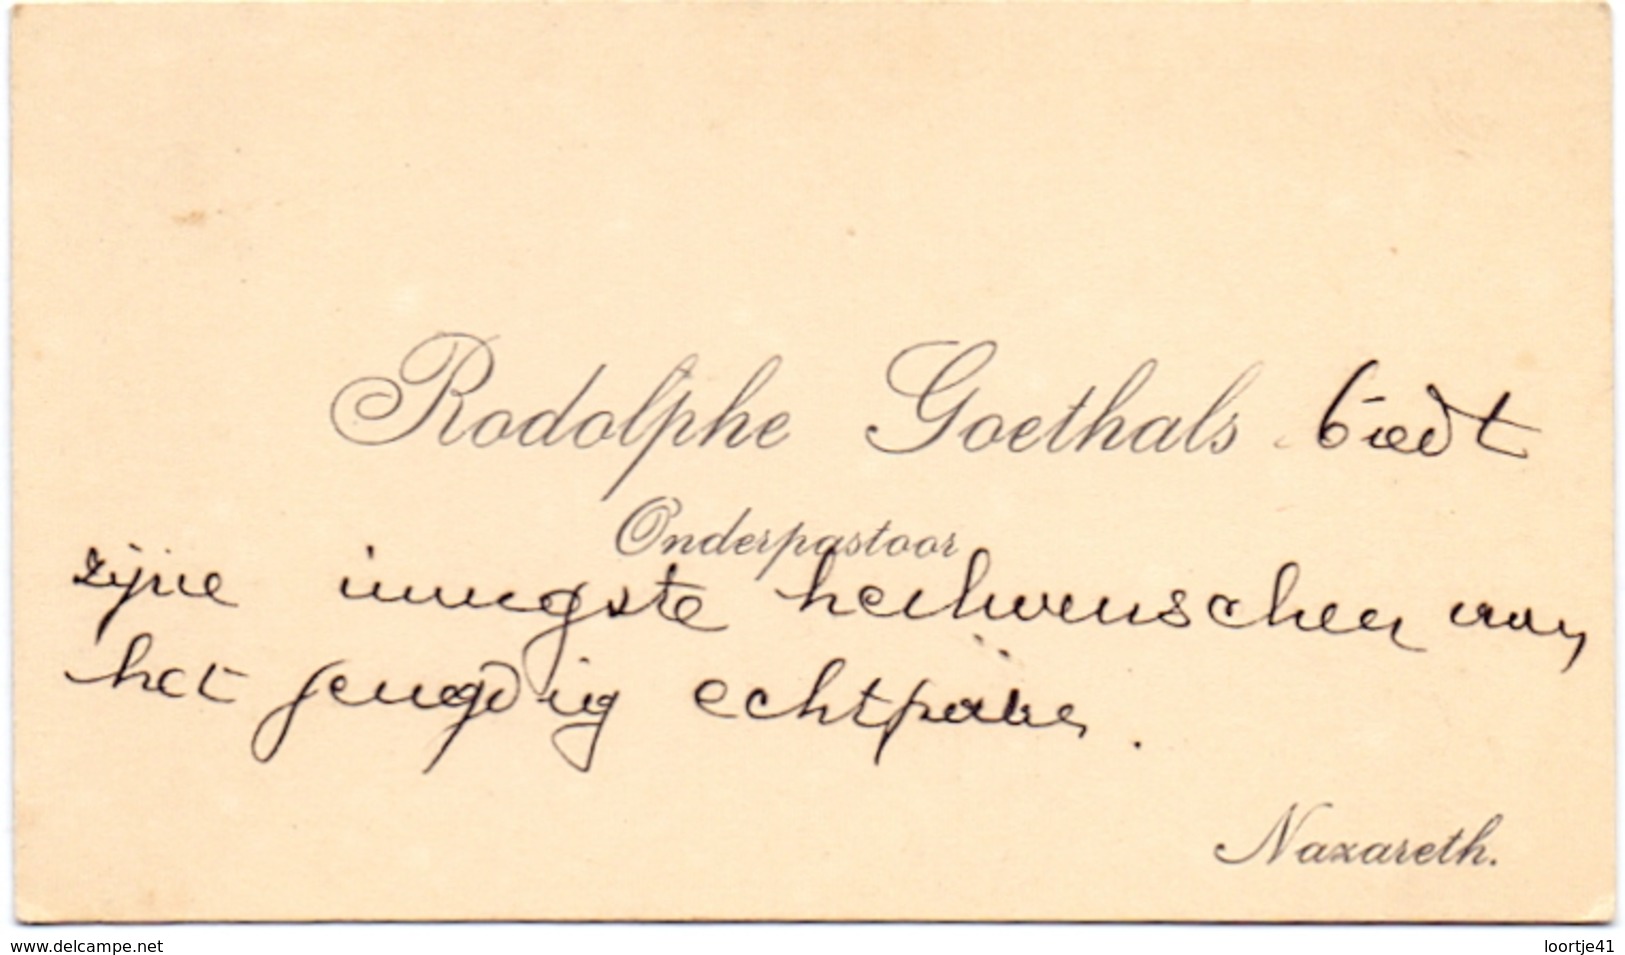 Rodolphe Goethals biedt
Onderpastoor
zijne innigste heilwenschen aan
het jeugdig echtpaar.
Nazareth.
www.delcampe.net
loortje41